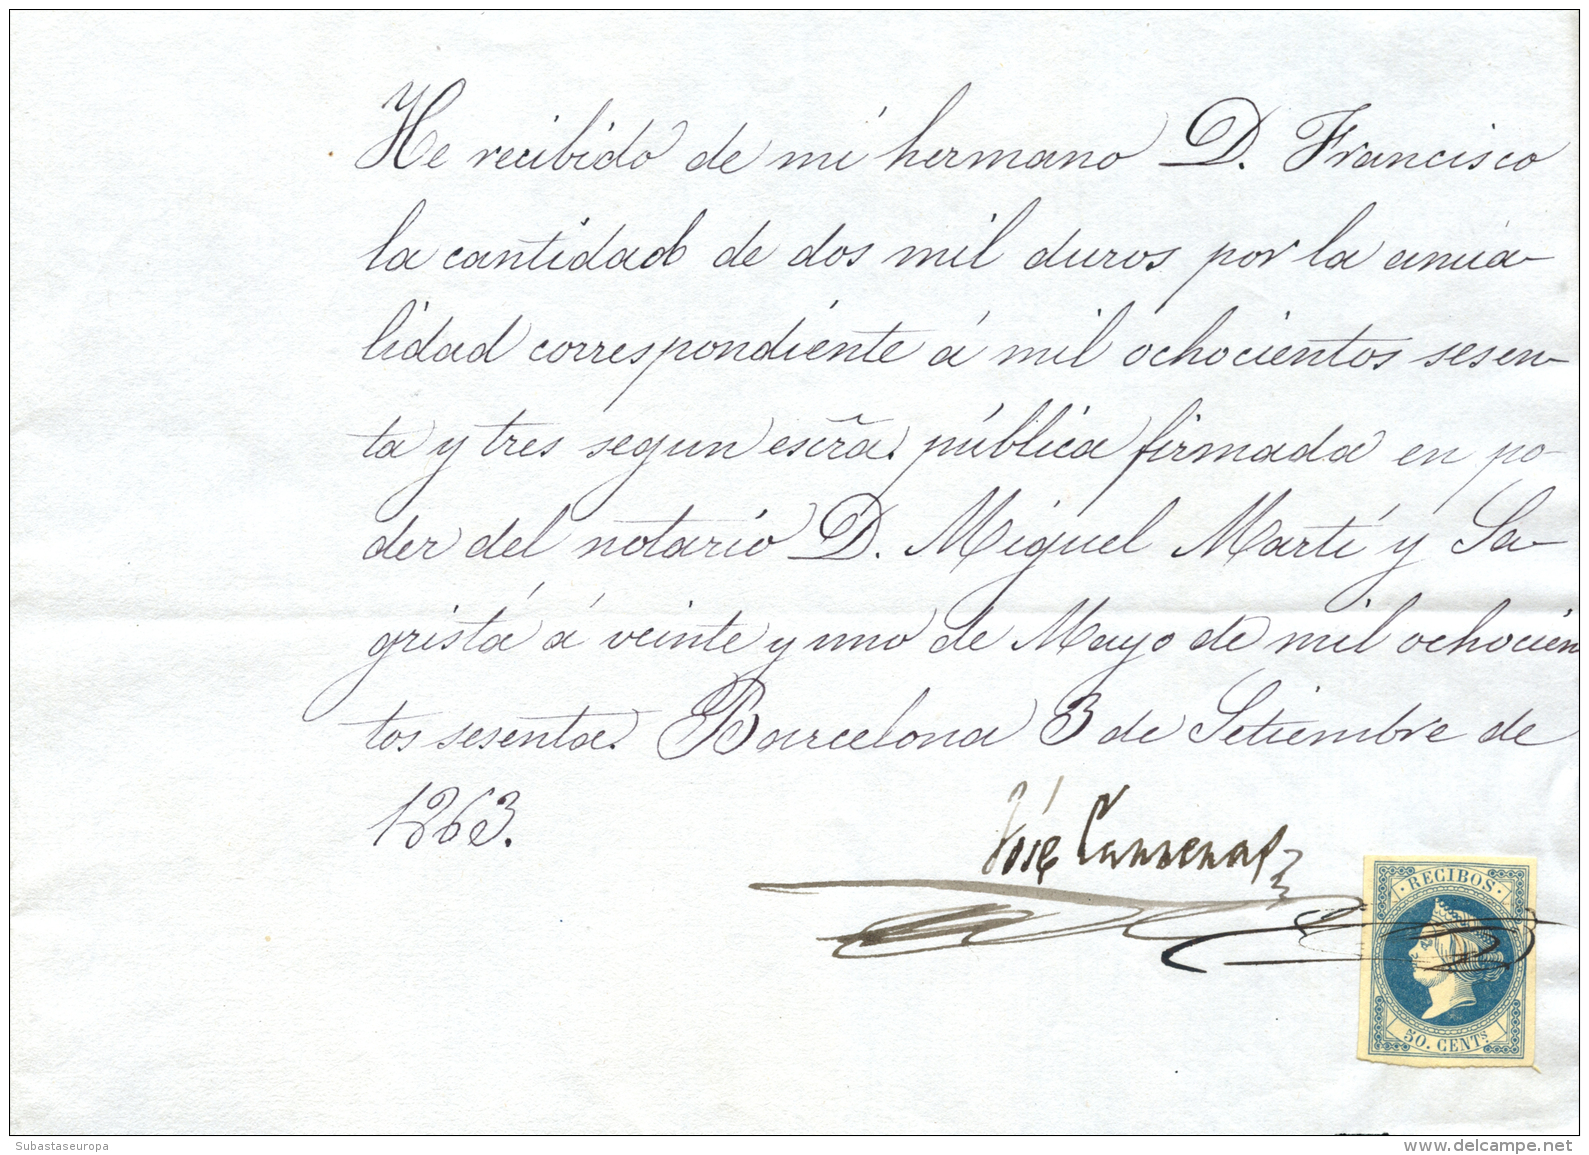 He recibido de mi hermano D. Francisco
la cantidad de dos mil duros por la anua-
lidad correspondiente á mil ochocientos sesen-
ta y tres segun escrã. pública firmada en po-
der del notario D. Miguel Martí y Sa-
gristá á veinte y uno de Mayo de mil ochocien
tos sesenta. Barcelona 3 de Setiembre de
1863.
José
· RECIBOS ·
50. CENTs.
Subastaseuropa
www.delcampe.net